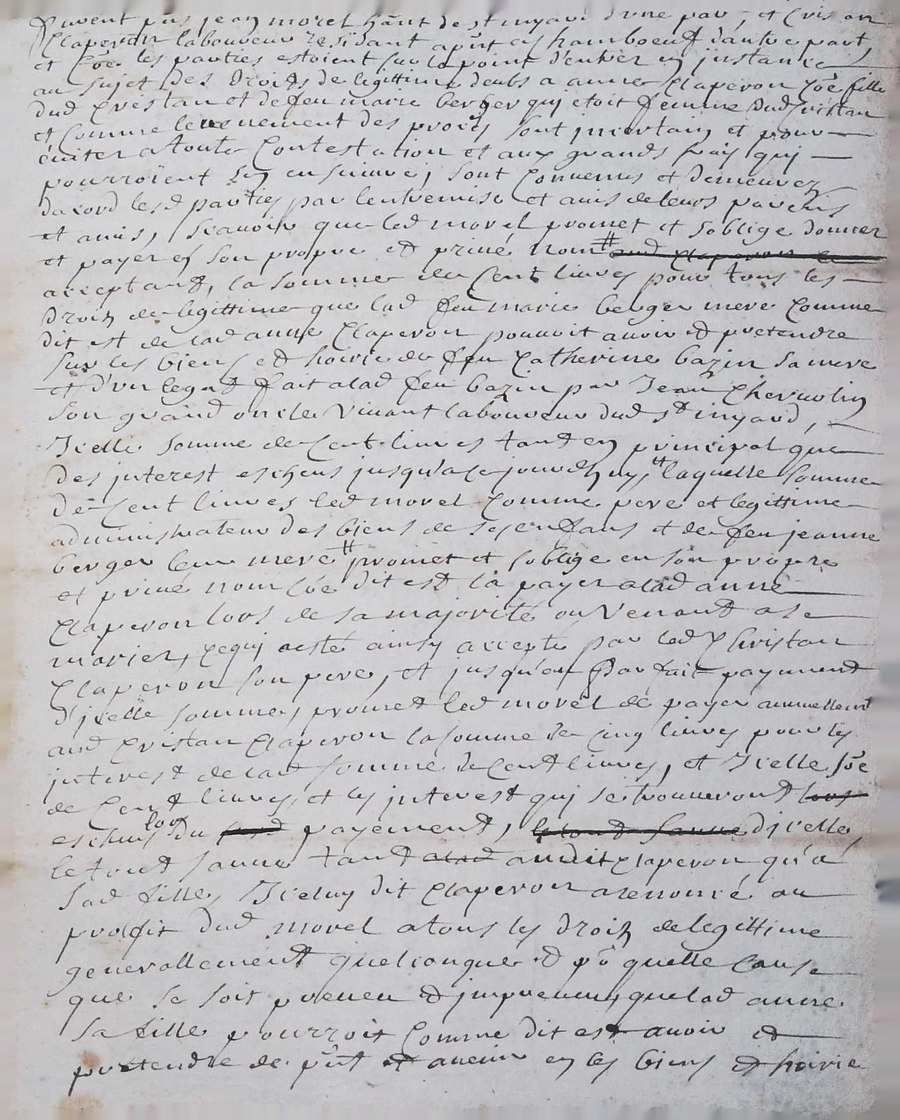 furent pnts jean morel hant de st myard d'une par, et Cristan
Claperon laboureur residant a pnt a Chamboeuf dautre part,
et Coe les parties estoient sur le point d'entrer en jnstance
au sujet des droits de legittime deubs a anne Claperon Coe fille
dud Cristan et de feu marie berger qui etoit femme dud Cristan
et Comme levenement des procés sont jncertain et pour
éviter a toute Contestation et aux grands frais qui
pourroient sen ensuivre, sont Convenus et demeurez
dacord lesd parties par lentremise et avis de leurs parens
et amis, scavoir que led morel promet et soblige donner
et payer en son propre et privé nom #
acceptant, la somme de Cent livres pour tous les
droits de legittime que lad feu marie berger mere Comme
dit est de lad anne Claperon pouvoit avoir et pretendre
sur les biens et hoirie de feu Catherine bazin sa mere
et d'un legat fait a lad feu bazin par Jean Chervolin
son grand oncle vivant laboureur dud st myard,
Icelle somme de Cent livres tant en principal que
des jnterest escheus jusqu'a ce jourdhuy # laquelle somme
de Cent livres led morel Comme pere et legittime
administrateur des biens de ses enfans et de feu jeanne
berger leur mere # promet et soblige en son propre
et privé nom Coe dit est la payer a lad anne
Claperon lors de sa majorité ou venant a se
marier, ce qui a esté ainsy accepté par led Christan
Claperon son pere, et jusqu'au parfait payement
d'icelle somme, promet led morel de payer annuellemt
aud Cristan Claperon la somme de cinq livres pour les
jnterest de lad somme de Cent livres, et Icelle soe
de Cent livres et les jnterest qui se trouveront lors
escheus lors du payement, le tout sanne dicelle
le tout sanne tant a lad audit Claperon qu'a
sad fille, Iceluy dit Claperon a renoncé au
proffit dud morel a tous les droits de legittime
generallement quelconque et po quelle cause
que se soit preveu et jmpreveus, que lad anne
sa fille pourroit Comme dit est avoir et
pretendre de pnt et avenir en les biens et hoirie